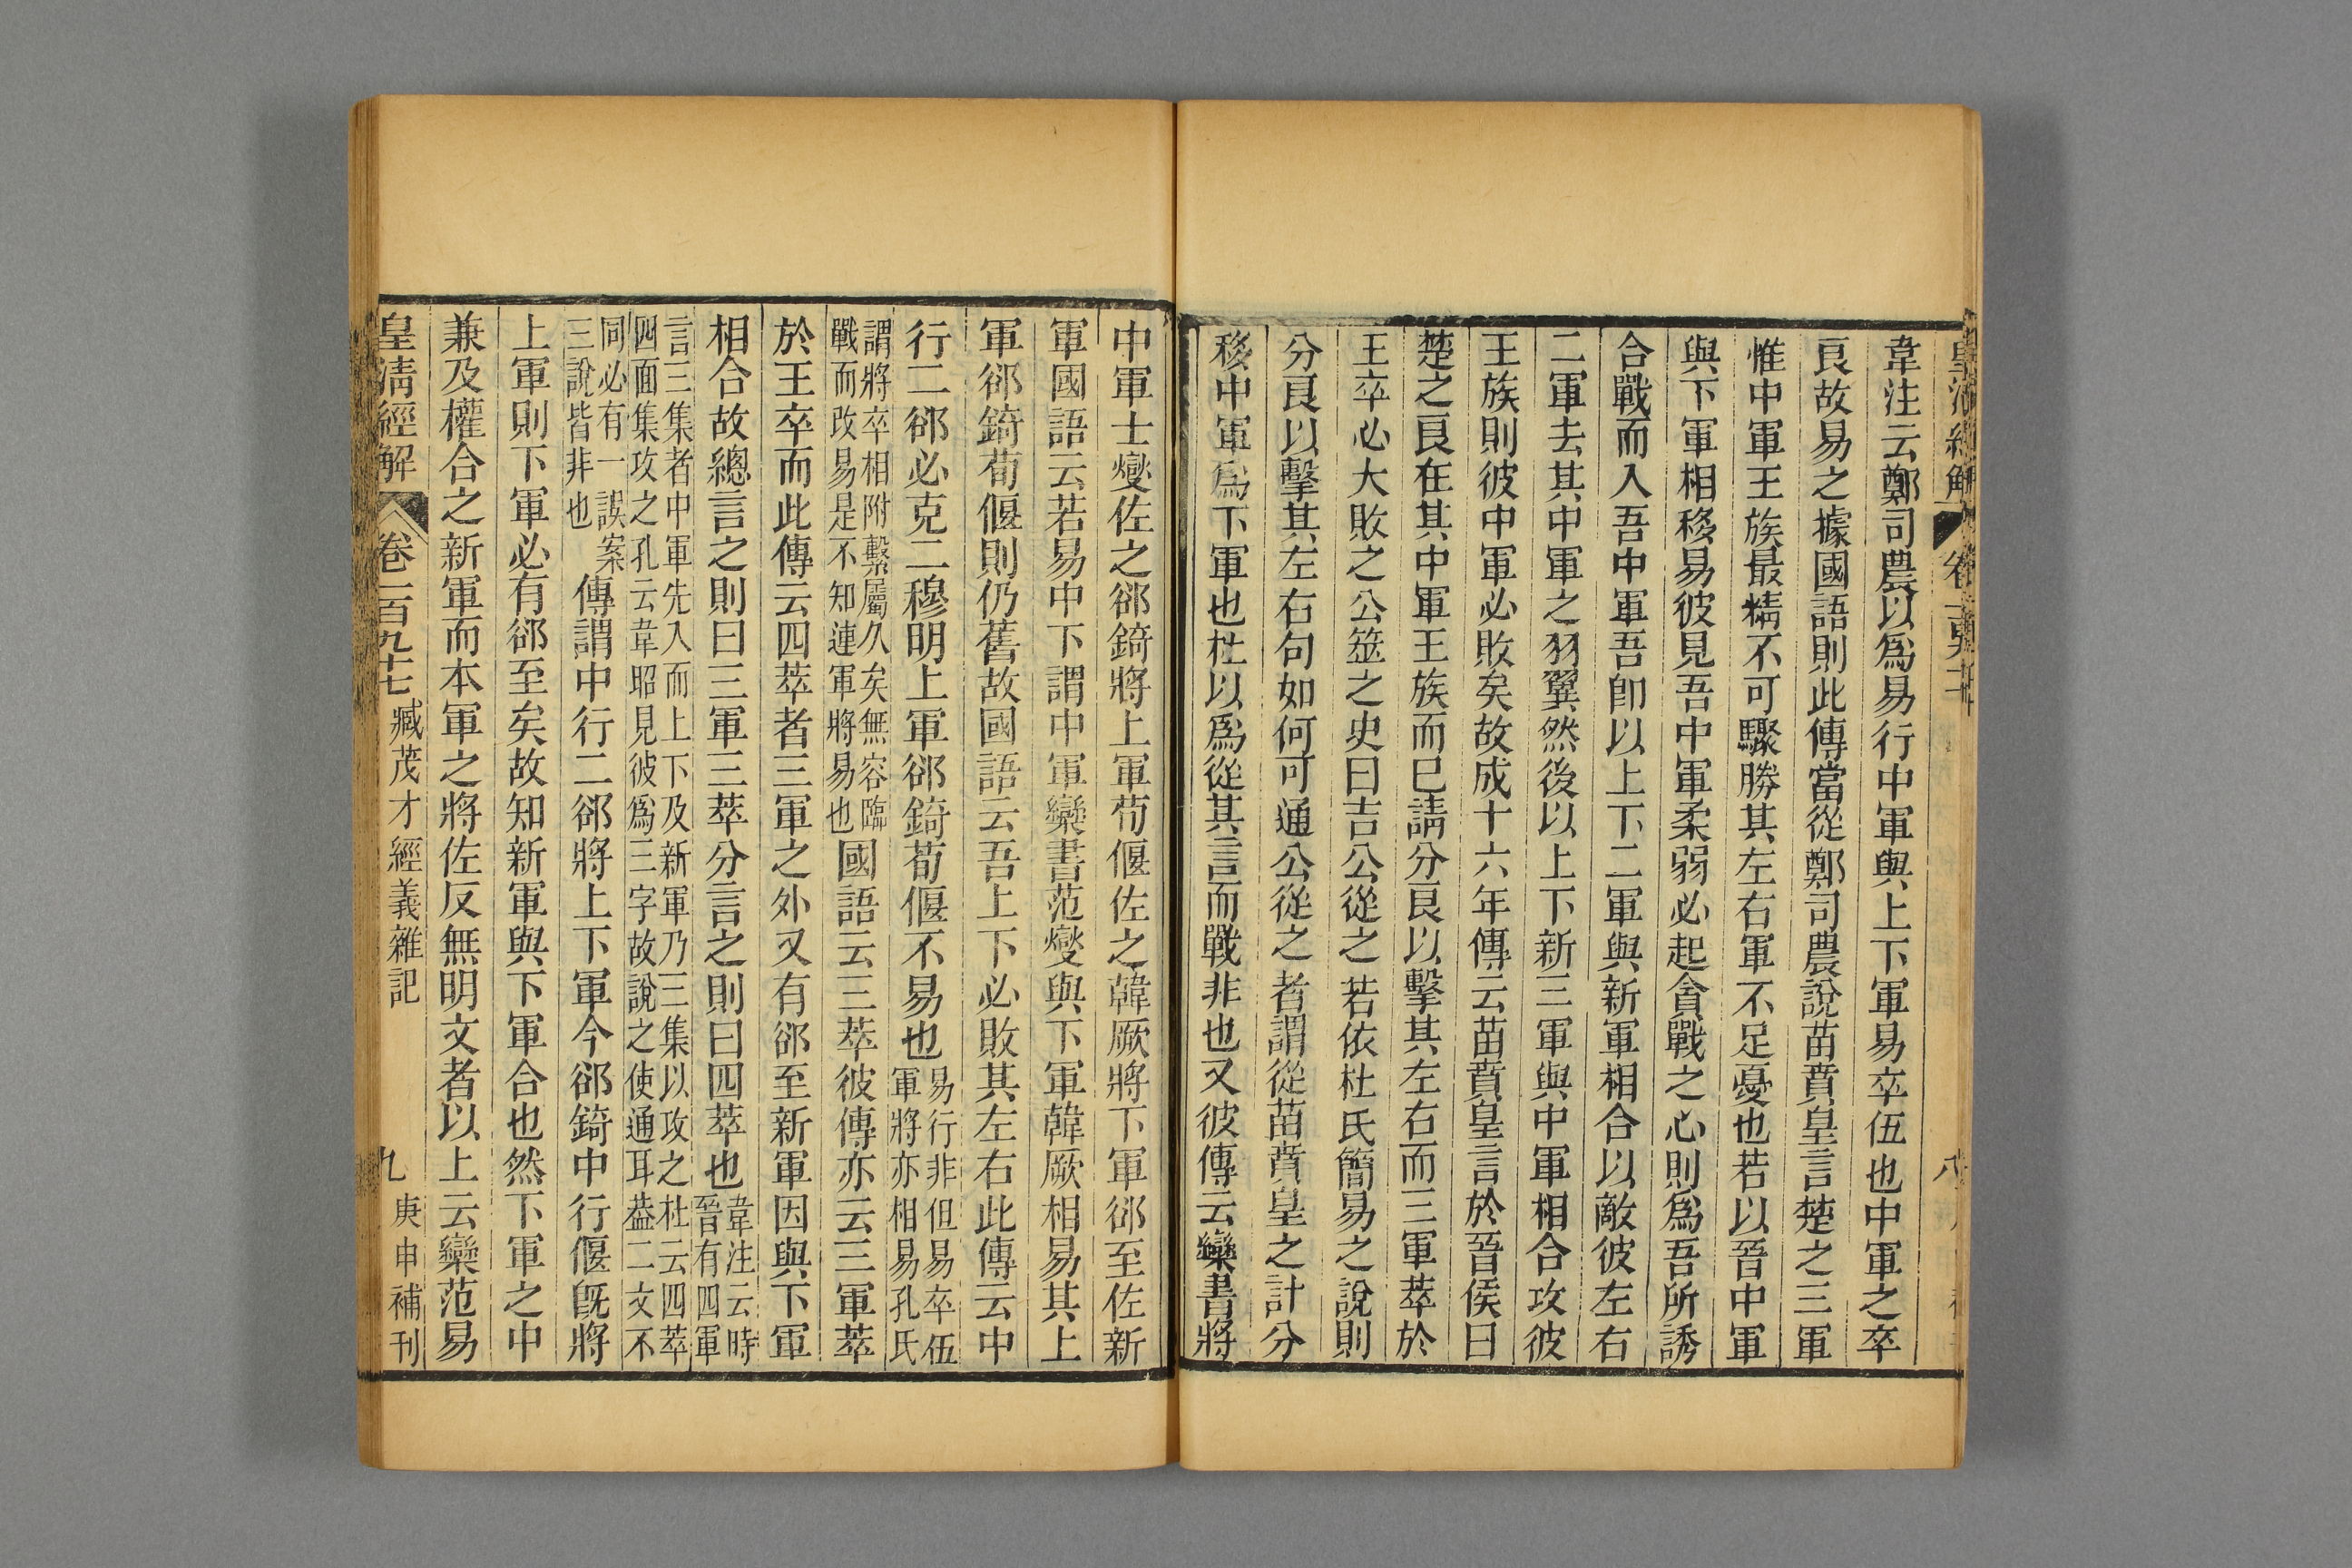 韋注云鄭司農以爲易行中軍與上下軍易卒伍也中軍之卒
良故易之據國語則此傳當從鄭司農說苗賁皇言楚之三軍
惟中軍王族最精不可驟勝其左右軍不足憂也若以晉中軍
與下軍相移易彼見吾中軍柔弱必起貪戰之心則爲吾所誘
合戰而入吾中軍吾卽以上下二軍與新軍相合以敵彼左右
二軍去其中軍之羽翼然後以上下新三軍與中軍相合攻彼
王族則彼中軍必敗矣故成十六年傳云苗賁皇言於晉侯曰
楚之良在其中軍王族而已請分良以擊其左右而三軍萃於
王卒必大敗之公筮之史曰吉公從之若依杜氏簡易之說則
分良以擊其左右句如何可通公從之者謂從苗賁皇之計分
移中軍爲下軍也杜以爲從其言而戰非也又彼傳云欒書將
中軍士燮佐之郤錡將上軍荀偃佐之韓厥將下軍郤至佐新
軍國語云若易中下謂中軍欒書范燮與下軍韓厥相易其上
軍郤錡荀偃則仍舊故國語云吾上下必敗其左右此傳云中
行二郤必克二穆明上軍郤錡荀偃不易也易行非但易卒伍
軍將亦相易孔氏
謂將卒相附繫屬久矣無容臨
戰而改易是不知連軍將易也國語云三萃彼傳亦云三軍萃
於王卒而此傳云四萃者三軍之外又有郤至新軍因與下軍
相合故總言之則曰三軍三萃分言之則曰四萃也韋注云時
晉有四軍
言三集者中軍先入而上下及新軍乃三集以攻之杜云四萃
四面集攻之孔云韋昭見彼爲三字故說之使通耳葢二文不
同必有一誤案
三說皆非也傳謂中行二郤將上下軍今郤錡中行偃旣將
上軍則下軍必有郤至矣故知新軍與下軍合也然下軍之中
兼及權合之新軍而本軍之將佐反無明文者以上云欒范易
皇淸經解 卷一百九十七 臧茂才經義雜記 九 庚申補刊